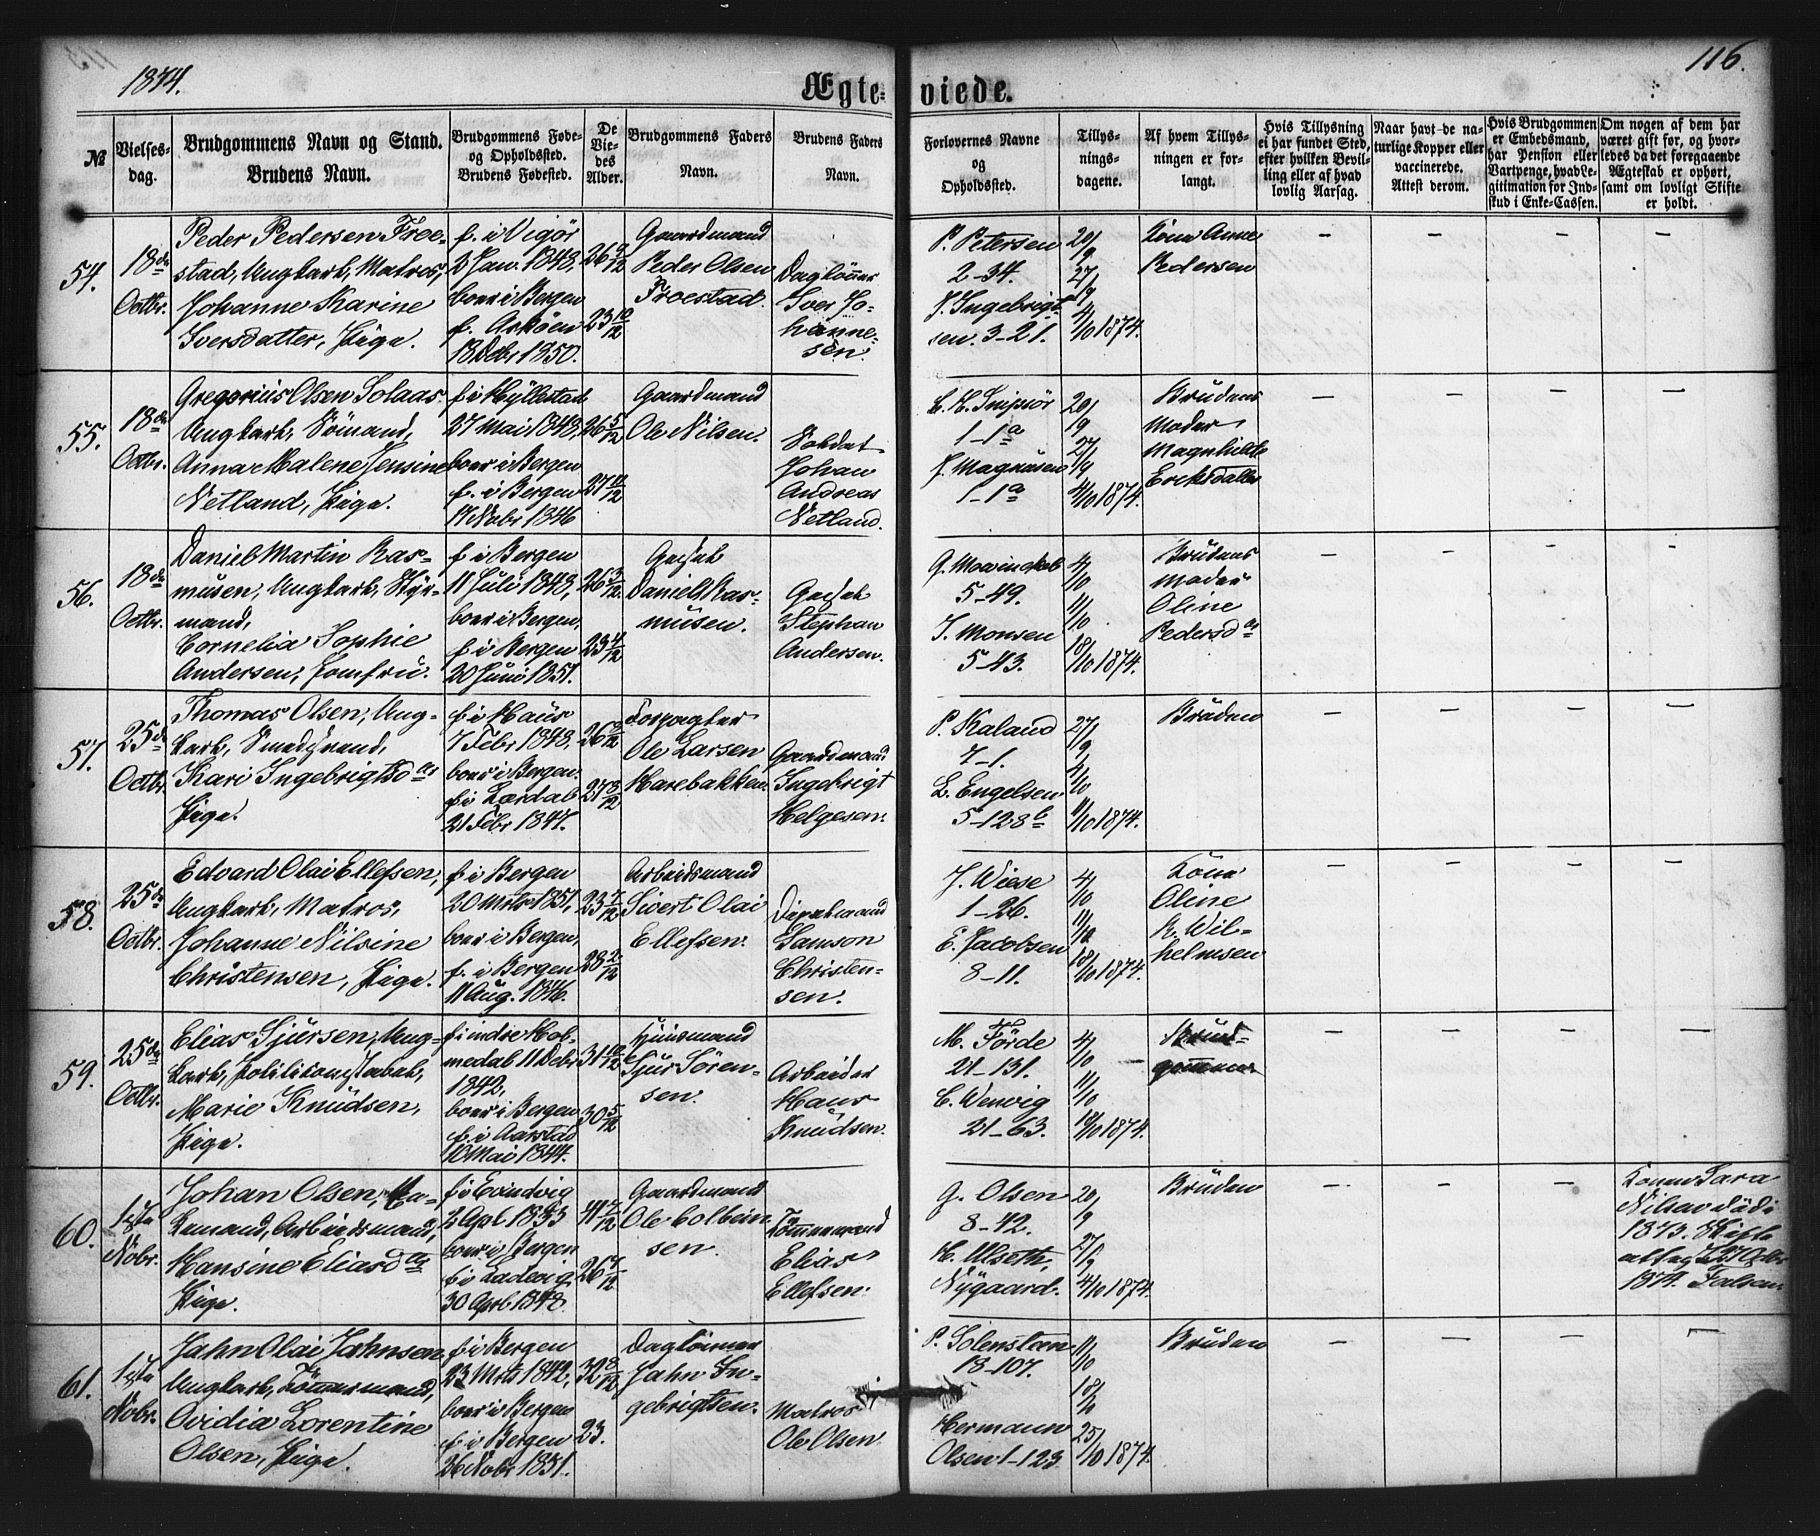 1874.
Ægte-
viede.
116.
№
Vielses-
dag.
Brudgommens Navn og Stand.
Brudens Navn.
Brudgommens Føde-
og Opholdssted.
Brudens Fødested.
De
Vie-
des
Alder.
Brudgommens Faders
Navn.
Brudens Faders
Navn.
Forlovernes Navne
og
Opholdssted.
Tillys-
nings-
dagene.
Af hvem Tillys-
ningen er for-
langt.
Hvis Tillysning
ei har fundet Sted,
efter hvilken Bevil-
ling eller af hvad
lovlig Aarsag.
Naar havt de na-
turlige Kopper eller
vaccinerede.
Attest derom.
Hvis Brudgommen
er Embedsmand,
har Pension eller
Vartpenge, hvad Le-
gitimation for Ind-
skud i Enke-Cassen.
Om nogen af dem har
været gift før, og hvor-
ledes da det foregaaende
Ægteskab er ophørt,
samt om lovligt Skifte
er holdt.
54.
18de
Octbr.
Peder Pedersen Froe-
stad, Ungkarl, Matros,
Johanne Karine
Iversdatter, Pige.
f. i Vigør
2 Jan. 1848,
boer i Bergen
f. Askøen
18 Decbr 1850.
26 9/12
23 10/12
Gaardmand
Peder Olsen
Froestad.
Dagløner
Iver Jo-
hanne-
sen.
P. Petersen
2-34.
J. Ingebrigt-
sen. 3-21.
20/9
27/9
4/10 1874.
Kona Anne
Pedersen
— — — —
55.
18de
Octbr.
Gregorius Olsen Solaas
Ungkarl, Sømand,
Anna Malene Jensine
Netland, Pige.
f. i Hyllestad
27 Mai 1848,
boer i Bergen
f. i Bergen
17 Novbr 1846
26 5/12
Gaardmand
Ole Nilsen.
Soldat
Johan
Andreas
Netland.
1-1a
J. Magnusen
1-1a
20/9
27/9
4/10 1874.
Brudens
Moder
Magnhilde
Ericksdatter
— — — —
56.
18de
Octbr.
Daniel Martin Ras-
musen, Ungkarl, Styr-
mand,
Cornelia Sophie
Andersen, Jomfru.
f. i Bergen
11 Juli 1848,
boer i Bergen,
f. i Bergen
20 Juni 1851.
26 3/12
23 4/12
Daniel Ras-
musen.
Stephan
Andersen.
G. Mowinckel
5-49.
J. Monsen
5-43.
4/10
11/10
18/10 1874.
Brudens
Moder
Oline
Pedersdtr
— — — —
57.
25de
Octbr.
Thomas Olsen, Ung-
karl, Smedsvend,
Kari Ingebrigtsdtr
Pige.
f. i Haus
7 Febr 1848,
boer i Bergen.
f. i Lærdal
21 Febr 1847.
26 8/12
27 8/12
Forpagter
Ole Larsen
Harebakken.
Gaardmand
Ingebrigt
Helgesen.
P. Kaland
7-1.
L. Engelsen
5-128b
27/9
4/10
11/10 1874.
Bruden
— — — —
58.
25de
Octbr.
Edvard Olai Ellefsen,
Ungkarl, Matros,
Johanne Nilsine
Christensen, Pige.
f. i Bergen
20 Mrts 1851,
boer i Bergen,
f. i Bergen
11 Aug. 1846.
23 7/12
28 2/12
Arbeidsmand
Sivert Olai
Ellefsen.
Samson
Christen-
sen.
J. Wiese
1-26.
E. Jacobsen
8-11.
4/10
11/10
18/10 1874.
Kona
Oline
K. Wil-
helmsen
— — — —
59.
25de
Octbr.
Elias Sjursen, Ung-
karl, Politikonstabel,
Marie Knudsen,
Pige.
f. indre Hol-
medal 11 Decbr
1842,
boer i Bergen
f. i Aarstad
10 Mai 1844.
31 10/12
30 5/12
Huusmand
Sjur Søren-
sen.
Arbeider
Hans
Knudsen.
M. Førde
21-131.
C. Wenvig
21-63.
4/10
11/10
18/10 1874.
Brud-
gommen
— — — —
60.
1ste
Nobr.
Johan Olsen, En-
kemand, Arbeidsmand,
Hansine Eliasdtr
Pige.
f. i Evindvig
2 Apl 1833
boer i Bergen
f. i Ladevig
30 Aprl 1848.
41 7/12
Gaardmand
Ole Colbein-
sen.
Tømmermand
Elias
Ellefsen.
G. Olsen
8-42.
H. Ulseth,
Nygaard.
20/9
27/9
4/10 1874.
Bruden
— — —
Konen Sara
Nilsen død i
1873. Skifte
1874. Falsen
61.
1ste
Nobr.
Jahn Olai Jahnsen
Ungkarl, Tømmermand,
Ovidia Lorentine
Olsen, Pige.
f. i Bergen
23 Mrts 1842,
boer i Bergen
f. i Bergen
26 Nobr 1851.
32 8/12
23.
Dagløinner
Jahn In-
gebrigtsen.
Matros
Ole Olsen
P. Solensteen
18-107.
Hermann
Olsen. 1-123
11/10
18/10
25/10 1874.
Bruden
— — — —